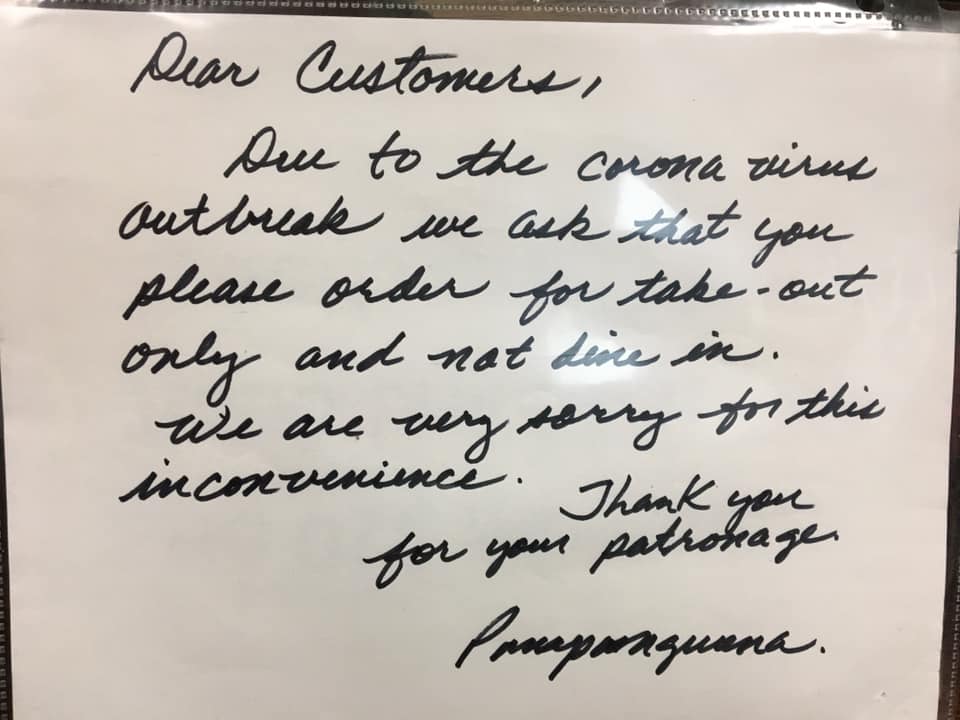 Dear Customers,
Due to the corona virus
outbreak we ask that you
please order for take-out
only and not dine in.
We are very sorry for this
inconvenience.
Thank you
for your patronage.